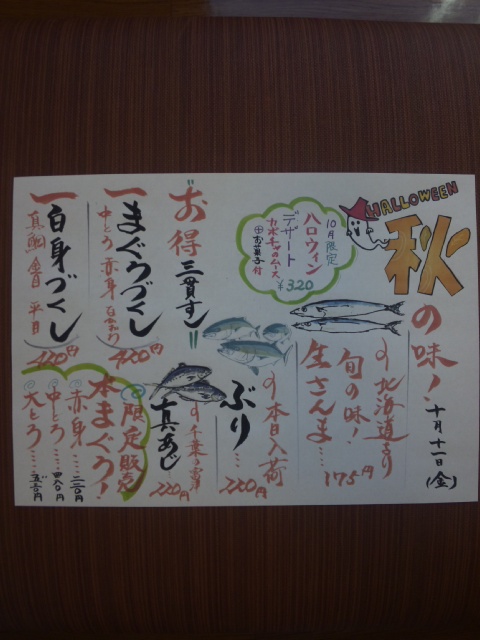 HALLOWEEN
秋の味!
十月十一日(金)
10月限定
ハロウィン
デザート
カボチャのムース
田お菓子付
¥320
北海道より
旬の味!
生さんま… 175円
本日入荷
ぶり… 220円
千葉
真あじ 220円
お得三貫すし
一まぐろづくし
中とろ 赤身
420円
一白身づくし
真鯛 平目
420円
限定販売
本まぐろ!
赤身… 二二〇円
中とろ… 四八〇円
大とろ… 五二〇円